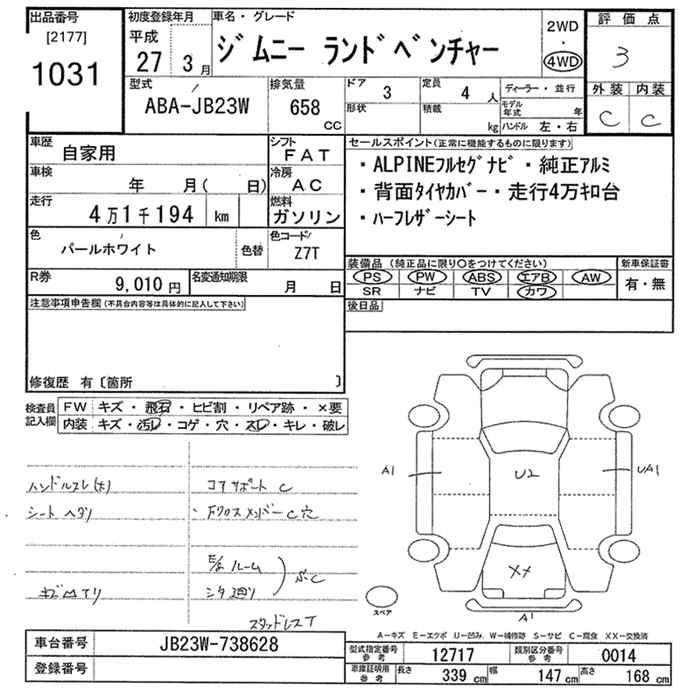 出品番号 初度登録年月 車名・グレード 評価点
[2177] 平成 2WD
1031 27 3月 ジムニー ランドベンチャー ・ 3
4WD
型式 排気量 ドア 3 定員 4人 ディーラー・並行 外装 内装
ABA-JB23W 658 cc 形状 積載 kg モデル年式 年 C C
ハンドル 左・右
車歴 自家用 シフト FAT セールスポイント(正常に機能するものに限ります)
車検 年 月( 日) 冷房 AC ・ALPINEフルセグナビ・純正アルミ
走行 4万1千194 km 燃料 ガソリン ・背面タイヤカバー・走行4万キロ台
色 パールホワイト 色替 色コード Z7T ・ハーフレザーシート
R券 9,010円 名変通知期限 月 日 装備品(純正品に限り○をつけてください) 新車保証書
PS PW ABS エアB AW 有・無
SR ナビ TV カワ
注意事項申告欄(不具合内容等は具体的に記入して下さい) 後日品
修復歴 有〔箇所 〕
検査員記入欄 FW キズ・飛石・ヒビ割・リペア跡・×要
内装 キズ・汚レ・コゲ・穴・スレ・キレ・破レ
A1 U2 UA1
ハンドルスレ(木) コアサポート C
シート ヘタリ Fクロスメンバー C穴
E/g ルーム
シタ廻り
XX
スペア
スタッドレスT A1
A-キズ E-エクボ U-凹み W-補修跡 S-サビ C-腐食 XX-交換済
車台番号 JB23W-738628 型式指定番号 参考 12717 類別区分番号 参考 0014
登録番号 車庫証明用 参考 長さ 339cm 幅 147cm 高さ 168cm